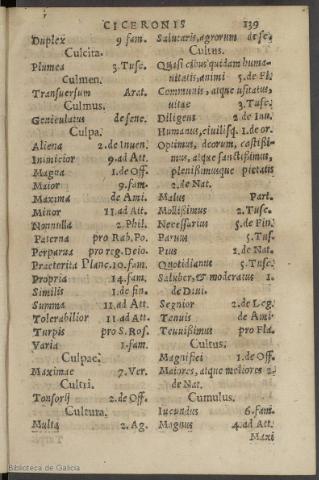 CICERONIS 139
Duplex 9 fam.
Culcita.
Plumea 3. Tusc.
Culmen.
Transuersum Arat.
Culmus.
Geniculatus de sene.
Culpa.
Aliena 2. de Inuen.
Inimicior 9. ad Att.
Magna 1. de Off.
Maior 9. fam.
Maxima de Ami.
Minor 11. ad Att.
Nonnulla 2. Phil.
Paterna pro Rab. Po.
Perparua pro reg. Deio.
Praeterita Planc. 10. fam.
Propria 14. fam.
Similis 1. de fin.
Summa 11. ad Att.
Tolerabilior 11. ad Att.
Turpis pro S. Ros.
Varia 1. fam.
Culpae.
Maximae 7. Ver.
Cultri.
Tonsorij 2. de Off.
Cultura.
Multa 2. Ag.
Salutaris, agrorum de se.
Cultus.
Quasi cibus quidam huma-
nitatis, animi 5. de Fi.
Communis, atque usitatus,
uitae 3. Tusc.
Diligens 2. de Inu.
Humanus, ciuilisq. 1. de or.
Optimus, deorum, castissi-
mus, atque sanctissimus,
plenissimusque pietatis
2. de Nat.
Malus Part.
Mollissimus 2. Tusc.
Necessarius 5. de Fin.
Paruus 5. Tus.
Pius 1. de Nat.
Quotidianus 5. Tusc.
Saluber, & moderatus 1.
de Diui.
Segnior 2. de Leg.
Tenuis de Ami.
Tenuissimus pro Fla.
Cultus.
Magnifici 1. de Off.
Maiores, atque meliores 2.
de Nat.
Cumulus.
Iucundus 6. fam.
Magnus 4. ad Att.
Maxi
Biblioteca de Galicia